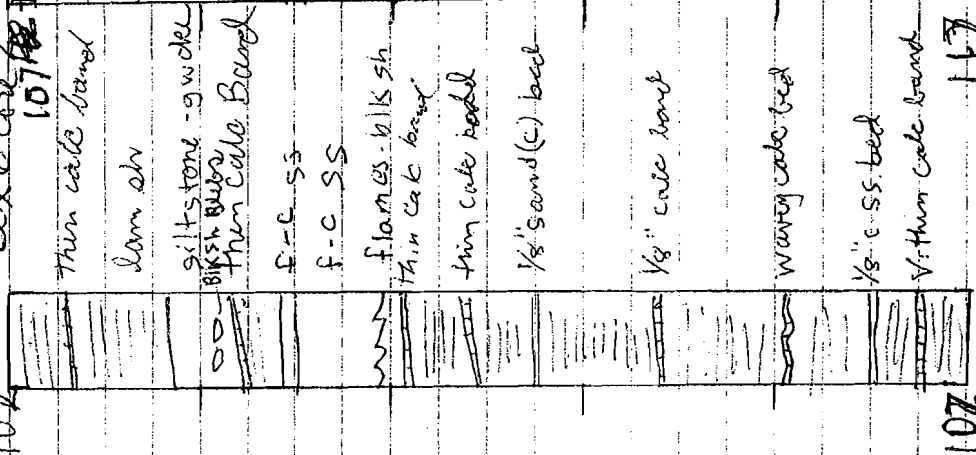 107
Thin calc band
lam sh
siltstone-gwcke
Blksh Blebs
thin calc Band
f-c ss
f-c ss
flames-blk sh
thin calc band
thin calc band
1/8" sand (c) bed
1/8" calc band
wavey calc bed
1/8" c ss bed
V. thin calc band
117
107